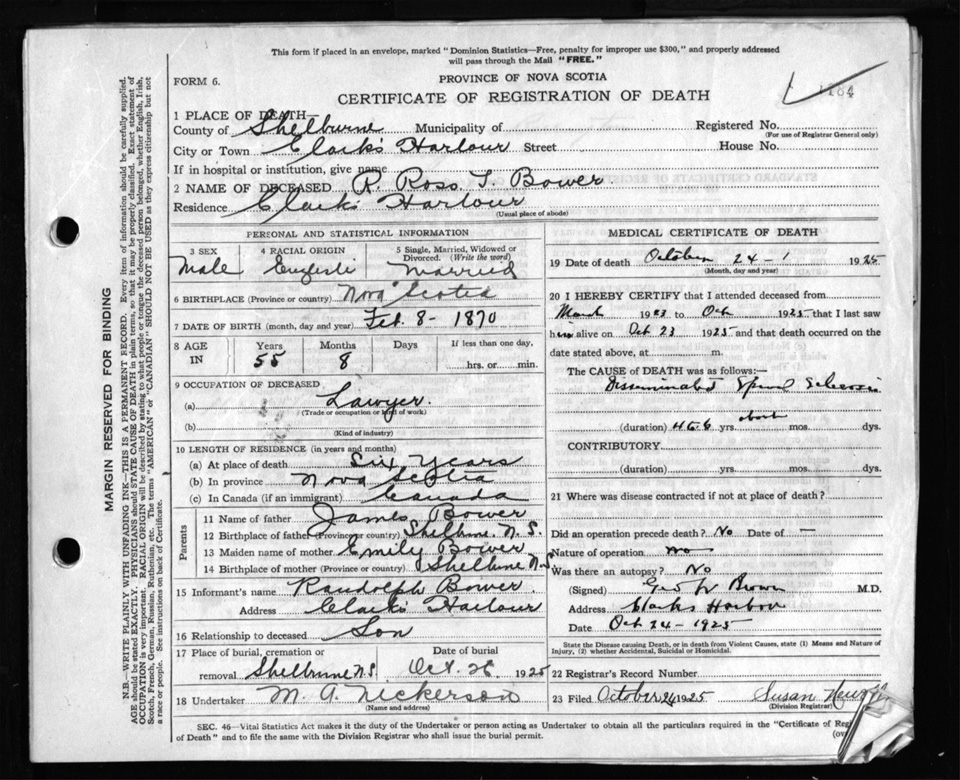 This form if placed in an envelope, marked "Dominion Statistics—Free, penalty for improper use $300," and properly addressed
will pass through the Mail "FREE."
FORM 6.
PROVINCE OF NOVA SCOTIA
CERTIFICATE OF REGISTRATION OF DEATH
1 PLACE OF DEATH—
County of Shelburne Municipality of Registered No.
(For use of Registrar General only)
City or Town Clark's Harbour Street House No.
If in hospital or institution, give name
2 NAME OF DECEASED R. Ross. T. Bower.
Residence Clark's Harbour
(Usual place of abode)
PERSONAL AND STATISTICAL INFORMATION
3 SEX 4 RACIAL ORIGIN 5 Single, Married, Widowed or Divorced. (Write the word)
Male English Married
6 BIRTHPLACE (Province or country) Nova Scotia
7 DATE OF BIRTH (month, day and year) Feb. 8 - 1870
8 AGE IN Years 55 Months 8 Days If less than one day, hrs. or min.
9 OCCUPATION OF DECEASED
(a) Lawyer.
(Trade or occupation or kind of work)
(b)
(Kind of industry)
10 LENGTH OF RESIDENCE (in years and months)
(a) At place of death Six Years
(b) In province Nova Scotia
(c) In Canada (if an immigrant) Canada
Parents
11 Name of father James Bower
12 Birthplace of father (Province or country) Shelburne. N. S.
13 Maiden name of mother Emily Bower
14 Birthplace of mother (Province or country) Shelburne N.S
15 Informant's name Randolph Bower
Address Clark's Harbour
16 Relationship to deceased Son
17 Place of burial, cremation or removal Shelburne N.S. Date of burial Oct. 26 1925
18 Undertaker M. A. Nickerson
(Name and address)
MEDICAL CERTIFICATE OF DEATH
19 Date of death October 24 - 1925
(Month, day and year)
20 I HEREBY CERTIFY that I attended deceased from
March 1923 to Oct 1925 that I last saw
him alive on Oct 23 1925 and that death occurred on the
date stated above, at m.
The CAUSE OF DEATH was as follows:—
Disseminated Spinal Sclerosis
about
(duration) yrs. mos. dys.
CONTRIBUTORY
(duration) yrs. mos. dys.
21 Where was disease contracted if not at place of death?
Did an operation precede death? No Date of —
Nature of operation no
Was there an autopsy? No
(Signed) M.D.
Address Clarks Harbour
Date Oct 24 - 1925
State the Disease causing Death, or in death from Violent Causes, state (1) Means and Nature of
Injury, (2) whether Accidental, Suicidal or Homicidal.
22 Registrar's Record Number
23 Filed October 26 1925 Susan
(Division Registrar)
SEC. 46—Vital Statistics Act makes it the duty of the Undertaker or person acting as Undertaker to obtain all the particulars required in the "Certificate of
of Death" and to file the same with the Division Registrar who shall issue the burial permit.
MARGIN RESERVED FOR BINDING
N.B.—WRITE PLAINLY WITH UNFADING INK—THIS IS A PERMANENT RECORD. Every item of information should be carefully supplied.
AGE should be stated EXACTLY. PHYSICIANS should STATE CAUSE OF DEATH in plain terms, so that it may be properly classified. Exact statement of
OCCUPATION is very important. RACIAL ORIGIN will be described by stating to what people or tongue the deceased person belonged, whether English, Irish,
Scotch, French, German, Russian, Ruthenian, etc. The terms "AMERICAN" or "CANADIAN" SHOULD NOT BE USED as they express citizenship but not
a race or people. See instructions on back of Certificate.